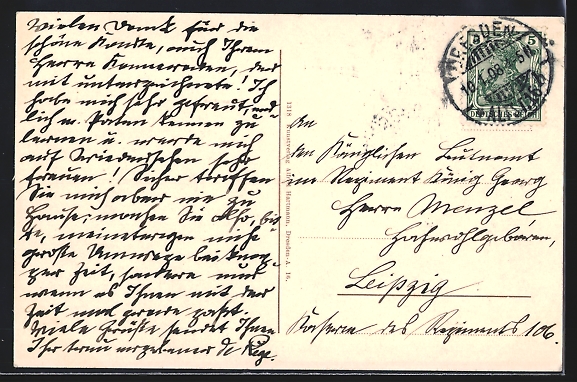 Vielen Dank für die
schöne Karte, auch Ihrem
Herrn Kameraden, der
mit unterzeichnete! Ich
habe mich sehr gefreut, end-
lich m. Paten kennen zu
lernen u. würde mich
auf Wiedersehen sehr
freuen! Sicher treffen
Sie mich aber nie zu
Hause; machen Sie also, bit-
te, meinetwegen nicht
große Umwege bei knap-
per Zeit, sondern nur
wenn es Ihnen mit der
Zeit mal gerade paßt.
Viele Grüße sendet Ihnen
Ihr treu ergebener
1318 Kunstverlag Hartmann, Dresden-A. 16.
DRESDEN
ALTST.
5
DEUTSCHES REICH
An
den Königlichen Leutnant
im Regiment König Georg
Herrn Menzel,
Hochwohlgeboren,
Leipzig
Kaserne des Regiments 106.